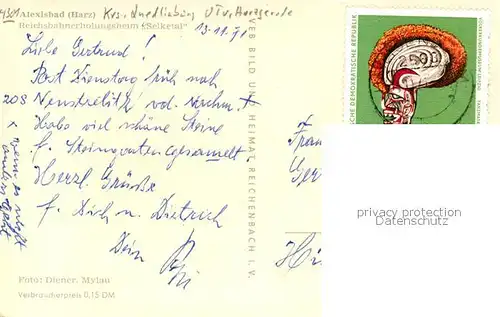 4301 Alexisbad (Harz) Krs. Quedlinburg OT v. Harzgerode
Reichsbahnerholungsheim "Selketal"
13.11.71
Liebe Gertrud!
Post Dienstag früh nach
Neustrelitz vd.
208
Habe viel schöne Steine
f. Steingarten gesammelt.
Herzl. Grüße
f. Dich u. Dietrich
Dein
x wenn es nicht
anders geht
Foto: Diener, Mylau
Verbraucherpreis 0,15 DM
VEB BILD UND HEIMAT, REICHENBACH I. V.
DEUTSCHE DEMOKRATISCHE REPUBLIK
Frau
Ger
privacy protection
Datenschutz